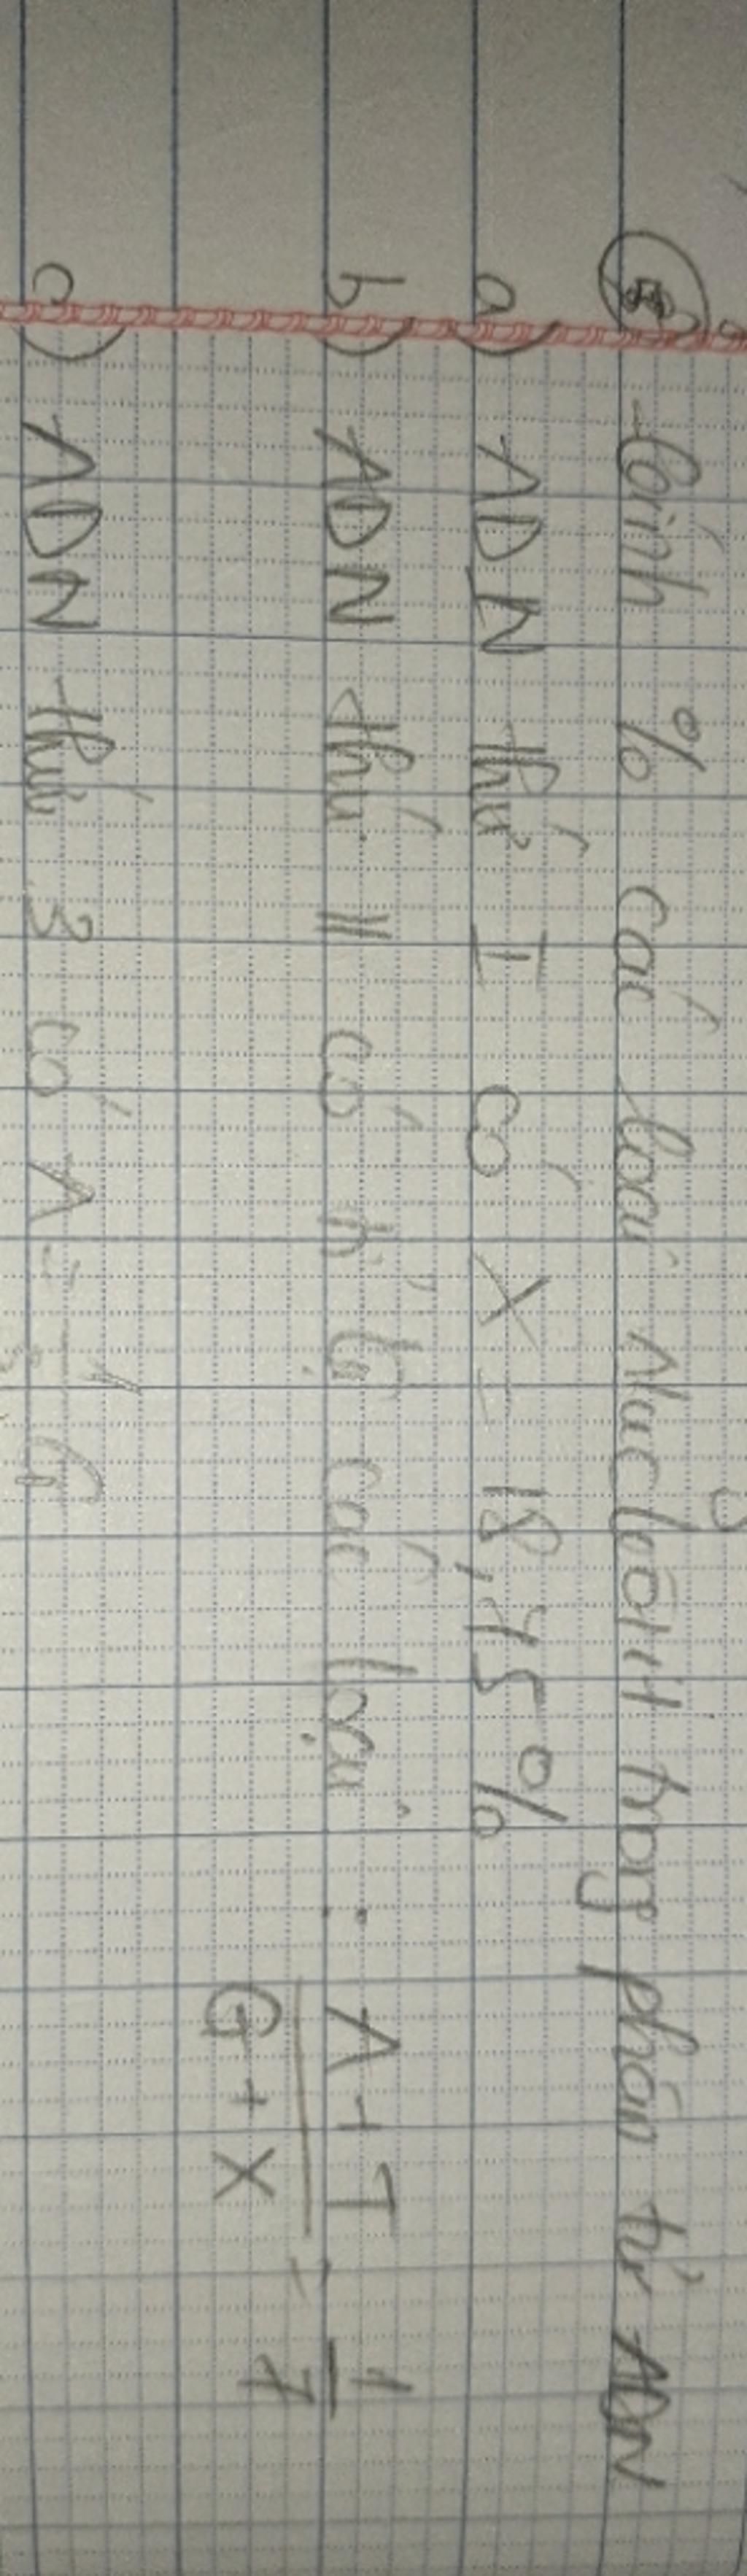 5 Tính % các loại Nuclêôtit trong phân tử ADN
a) ADN thứ I có X = 18,45%
b) ADN thứ II có tỉ lệ các loại : A+T / G+X = 1/7
c) ADN thứ 3 có A = G